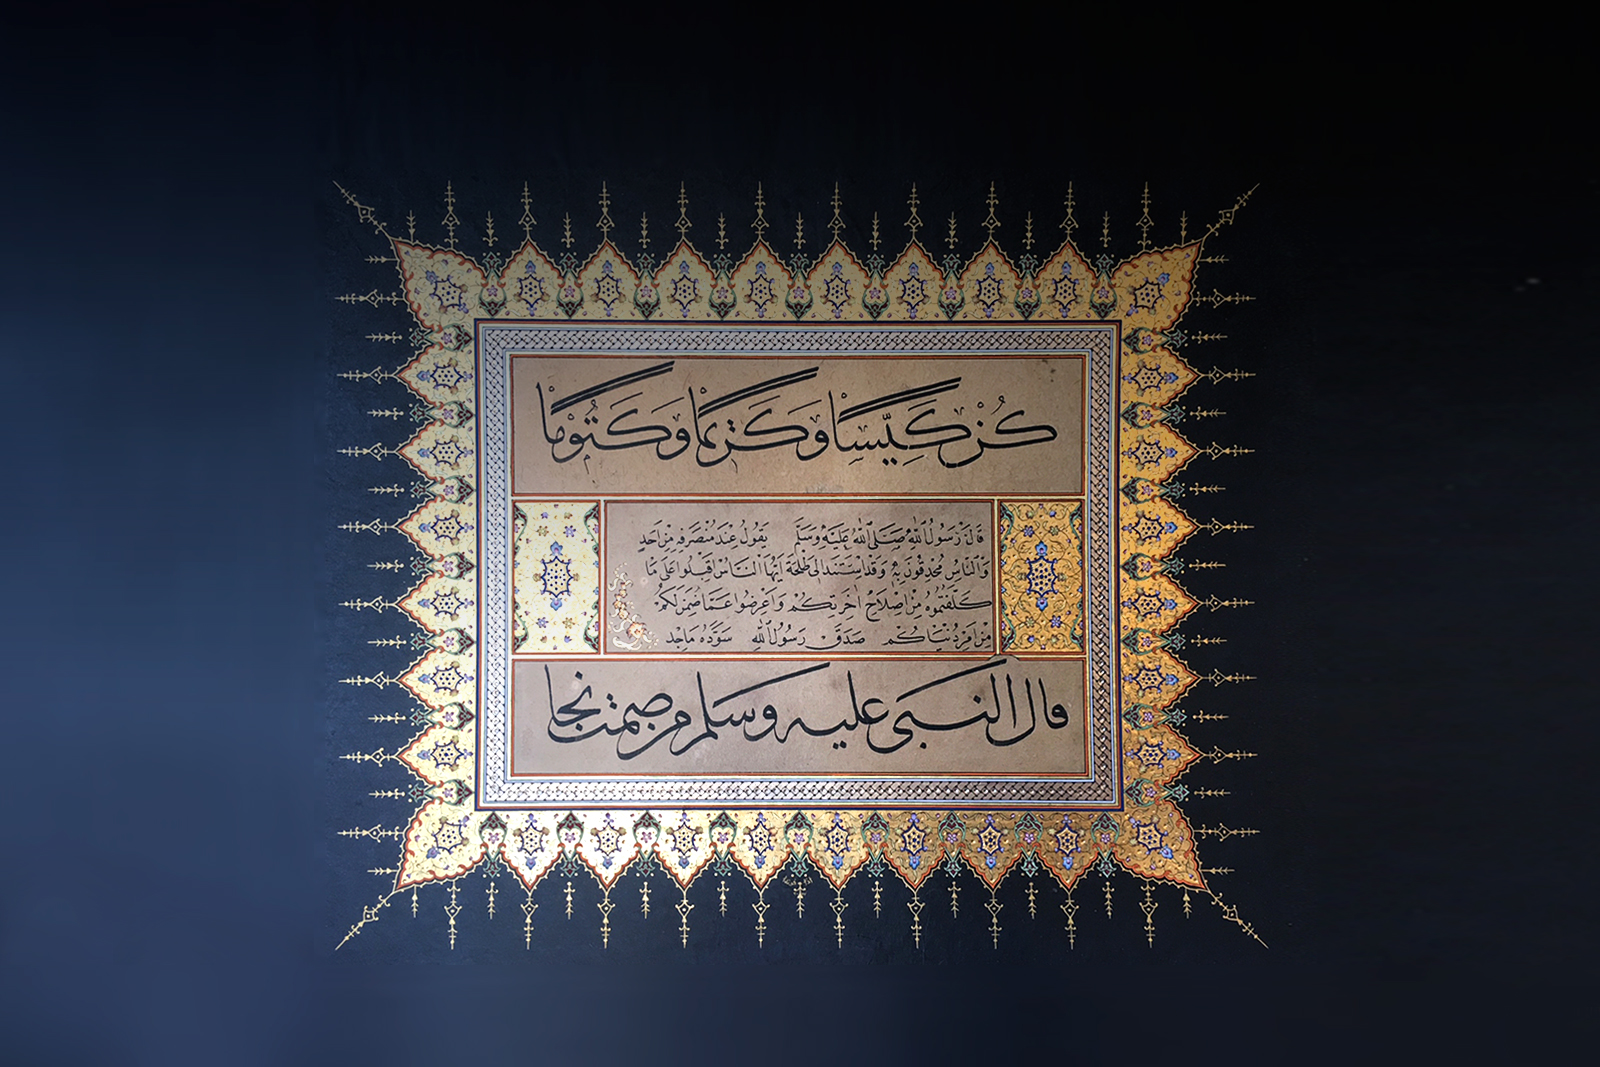 كُنْ كَيِّسًا وَكَرِيمًا وَكَتُومًا
قَالَ رَسُولُ اللهِ صَلَّى اللهُ عَلَيْهِ وَسَلَّمَ يَقُولُ عِنْدَ مُنْصَرَفِهِ مِنْ اُحُدٍ
وَالنَّاسُ مُحْدِقُونَ بِهِ وَقَدِ اسْتَنَدَ اِلَى طَلْحَةَ اَيُّهَا النَّاسُ اَقْبِلُوا عَلَى مَا
كُلِّفْتُمُوهُ مِنْ اِصْلَاحِ اٰخِرَتِكُمْ وَاَعْرِضُوا عَمَّا ضُمِنَ لَكُمْ
مِنْ اَمْرِ دُنْيَاكُمْ صَدَقَ رَسُولُ اللهِ سَوَّدَهُ مَاجِد
قال النبى عليه وسلم من صمت نجا